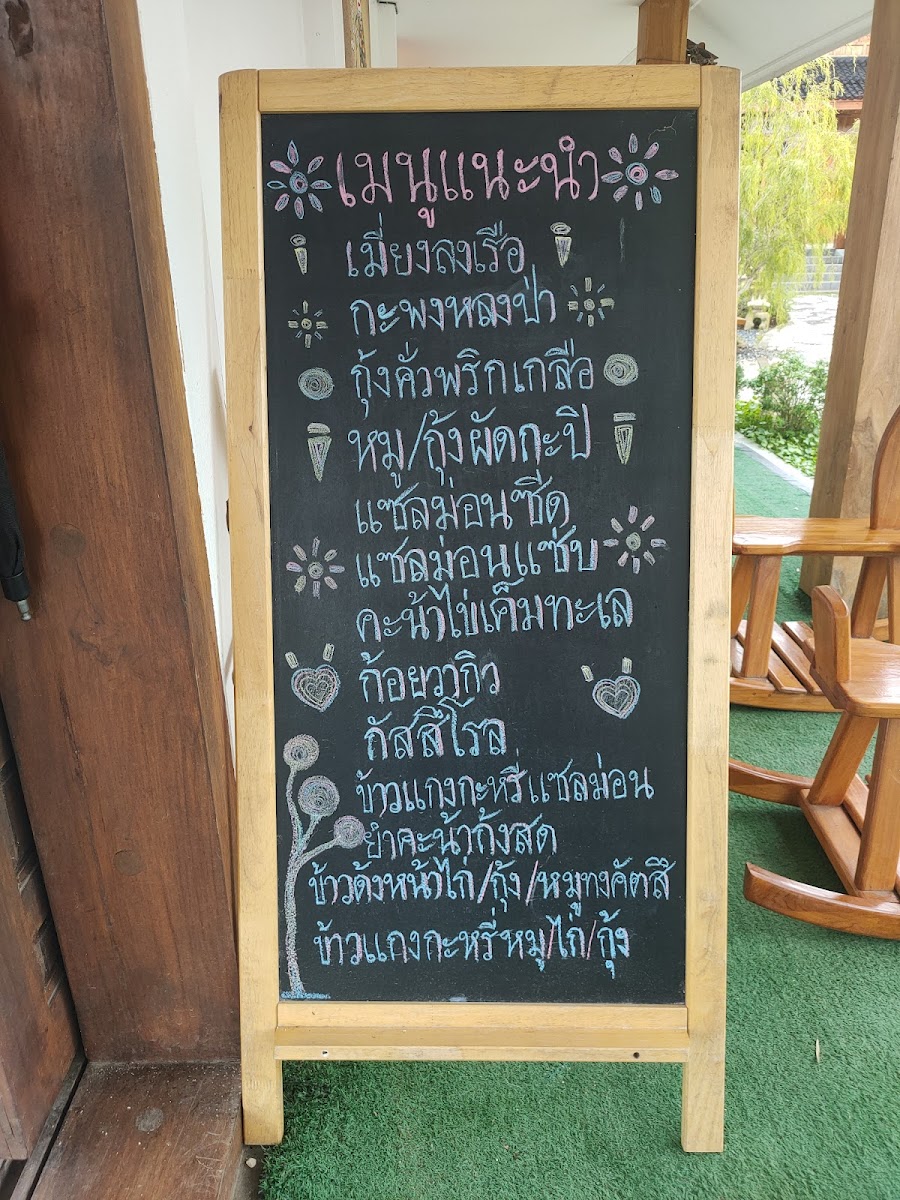 เมนูแนะนำ
เมี่ยงลงเรือ
กะพงหลงป่า
กุ้งคั่วพริกเกลือ
หมู/กุ้งผัดกะปิ
แซลม่อนซี๊ด
แซลม่อนแซ่บ
คะน้าไข่เค็มทะเล
ก้อยวากิว
ถัสสึโรล
ข้าวแกงกะหรี่แซลม่อน
ยำคะน้ากุ้งสด
ข้าวด้งหน้าไก่/กุ้ง/หมูทงคัตสึ
ข้าวแกงกะหรี่หมู/ไก่/กุ้ง